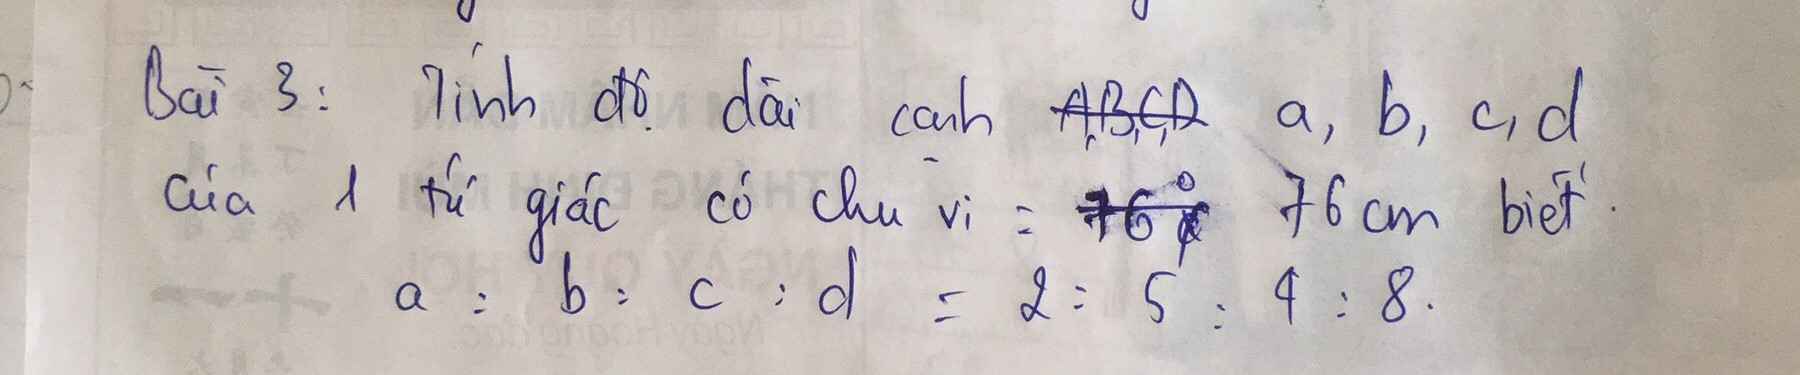 Bài 3: Tính độ dài cạnh A,B,C,D a, b, c, d
của 1 tứ giác có chu vi = 76 76 cm biết.
a : b : c : d = 2 : 5 : 4 : 8.